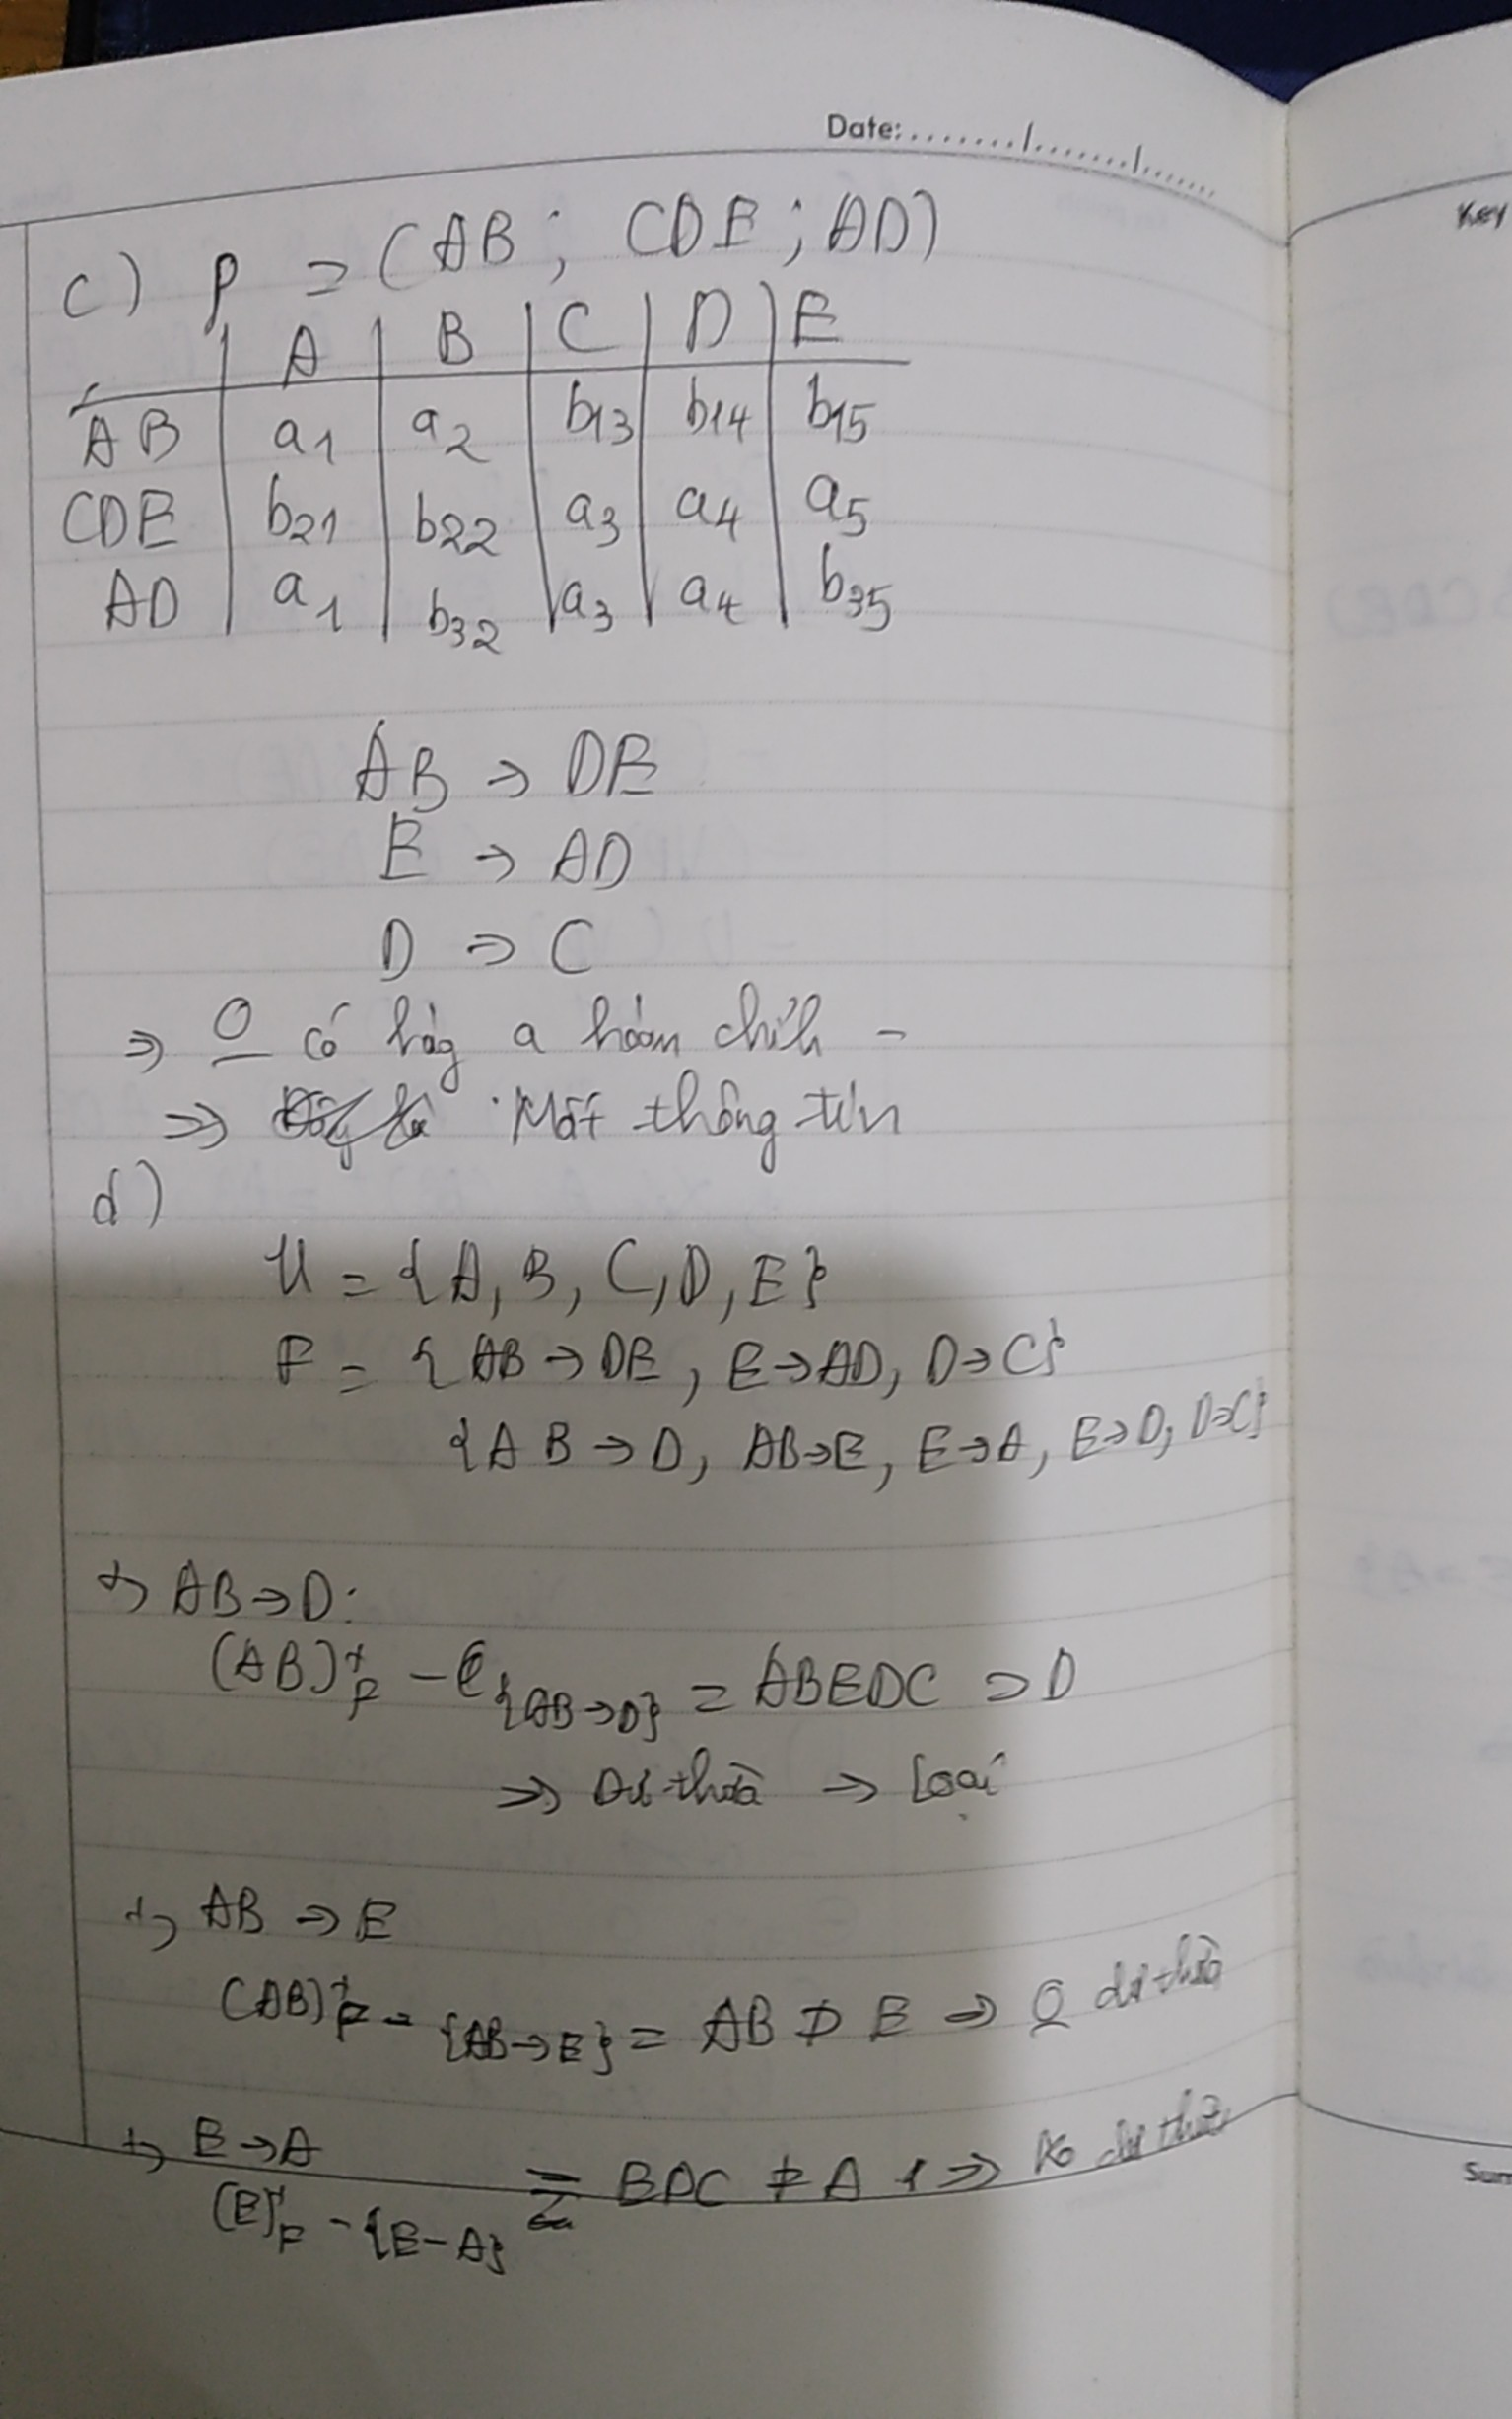 Date: ......../......../........
Key
c) ρ = (AB ; CDE ; AD)
A | B | C | D | E
AB | a1 | a2 | b13 | b14 | b15
CDE | b21 | b22 | a3 | a4 | a5
AD | a1 | b32 | a3 | a4 | b35
AB → DE
E → AD
D → C
⇒ O có hàg a hoàn chỉh
⇒ Mất thông tin
d)
U = {A, B, C, D, E}
F = {AB → DE, E → AD, D → C}
{AB → D, AB → E, E → A, E → D, D → C}
+) AB → D:
(AB)+F - {AB → D} = ABEDC ⊃ D
⇒ Dư thừa → loại
+) AB → E
(AB)+F - {AB → E} = AB D E ⇒ O dư thừa
+) E → A
(E)+F - {E - A} = EDC ⊅ A ⇒ Ko dư thừa
Sum